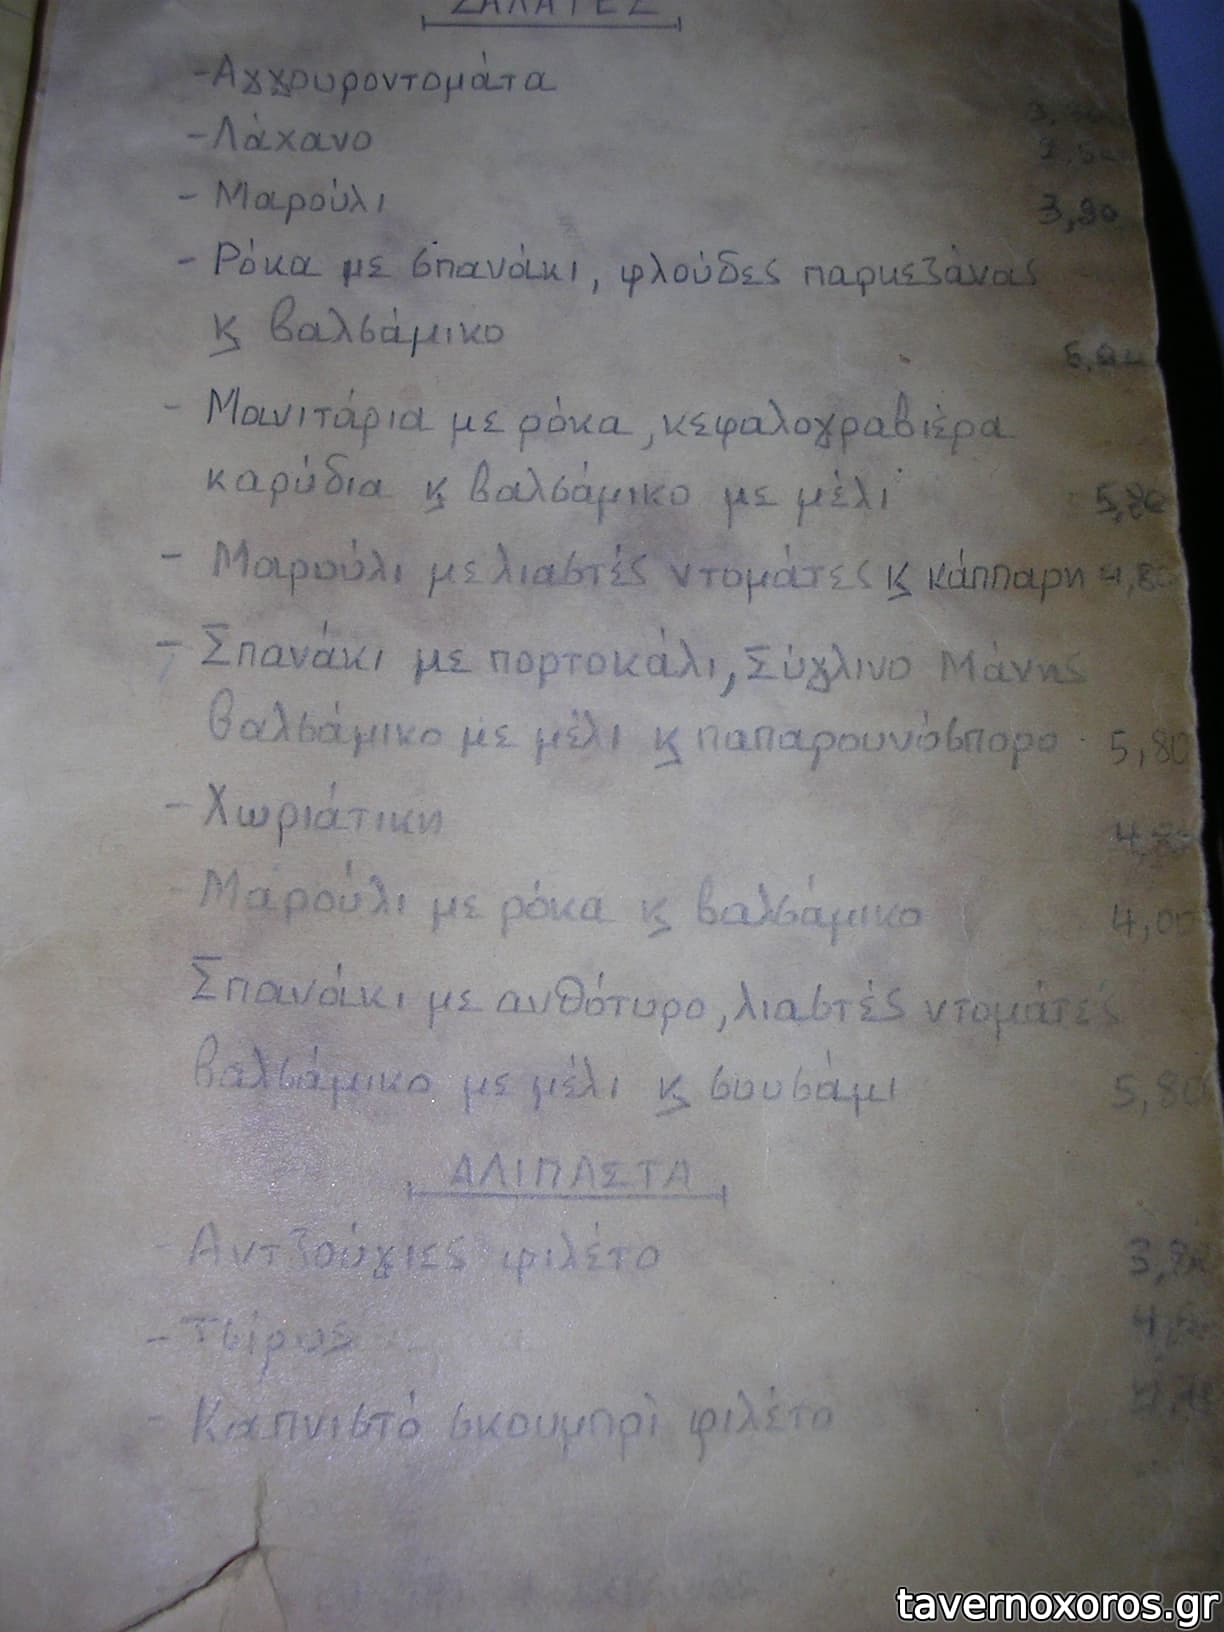 ΣΑΛΑΤΕΣ
-Αγγουροντομάτα
-Λάχανο
- Μαρούλι
- Ρόκα με σπανάκι, φλούδες παρμεζάνας
ϗ βαλσάμικο
- Μανιτάρια με ρόκα, κεφαλογραβιέρα
καρύδια ϗ βαλσάμικο με μέλι
- Μαρούλι με λιαστές ντομάτες ϗ κάππαρη 4,80
- Σπανάκι με πορτοκάλι, Σύγλινο Μάνης
βαλσάμικο με μέλι ϗ παπαρουνόσπορο 5,80
- Χωριάτικη
- Μαρούλι με ρόκα ϗ βαλσάμικο 4,00
Σπανάκι με ανθότυρο, λιαστές ντομάτες
βαλσάμικο με μέλι ϗ σουσάμι 5,80
ΑΛΙΠΑΣΤΑ
- Αντζούγιες φιλέτο
- Τσίρος
- Καπνιστό σκουμπρί φιλέτο
tavernoxoros.gr